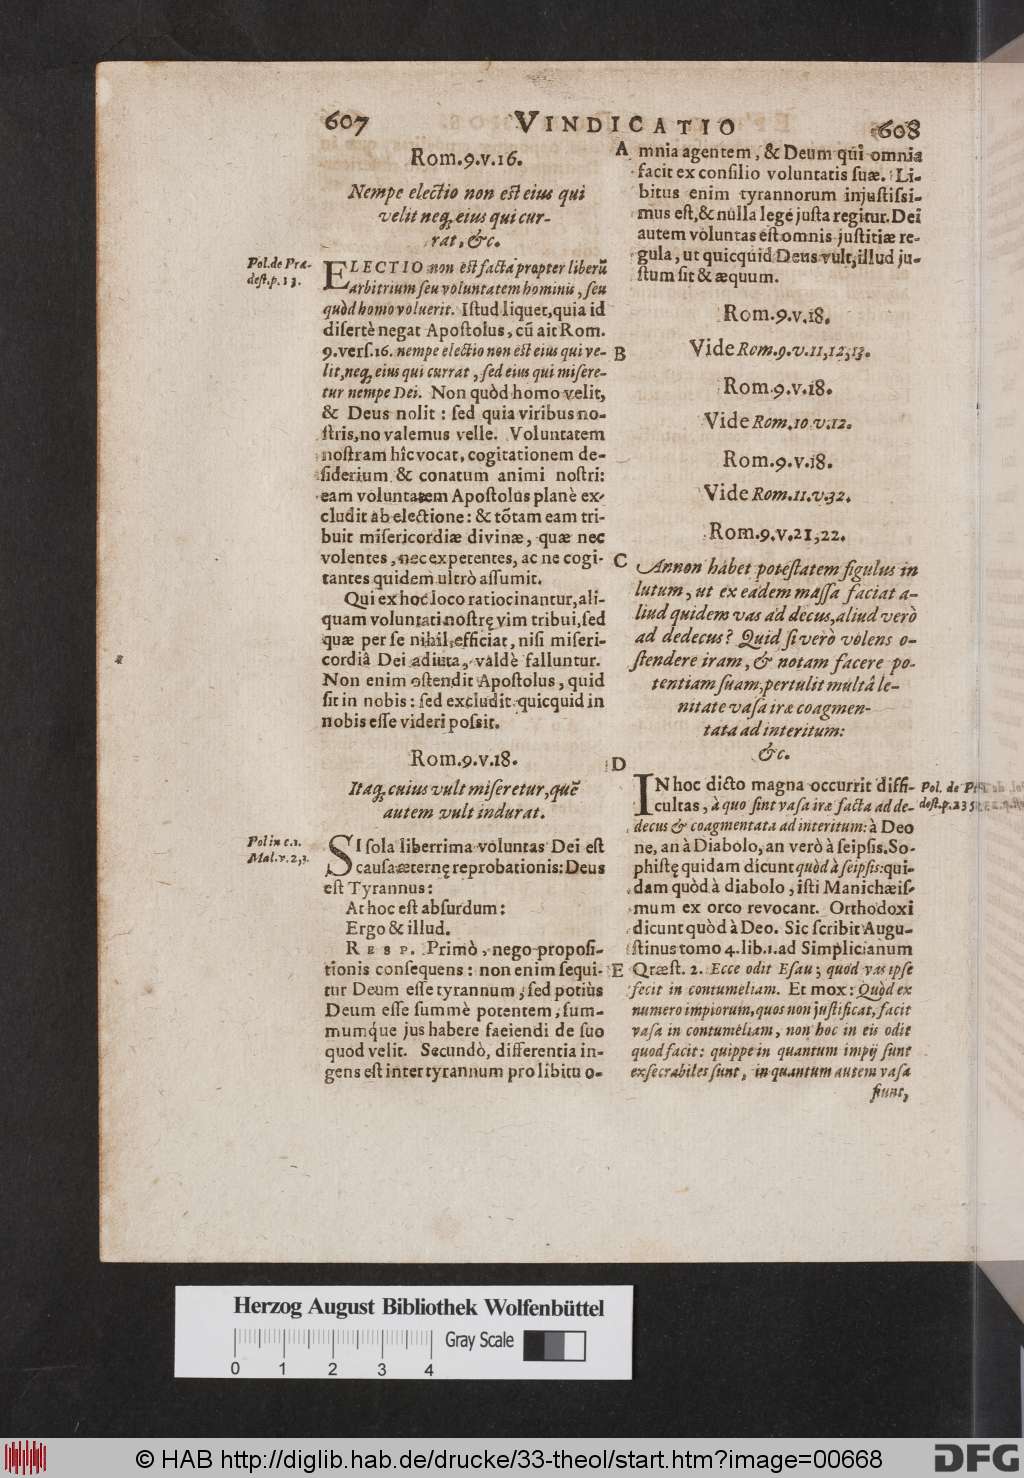 607 VINDICATIO 608
Rom.9.v.16.
Nempe electio non est eius qui
velit neq; eius qui cur-
rat, &c.
Pol. de Præ-
dest.p.13.
ELECTIO non est facta propter liberũ
arbitrium seu voluntatem hominis, seu
quòd homo voluerit. Istud liquet, quia id
disertè negat Apostolus, cũ ait Rom.
9.vers.16. nempe electio non est eius qui ve-
lit, neq; eius qui currat, sed eius qui misere-
tur nempe Dei. Non quòd homo velit,
& Deus nolit: sed quia viribus no-
stris, no valemus velle. Voluntatem
nostram hîc vocat, cogitationem de-
siderium & conatum animi nostri:
eam voluntatem Apostolus planè ex-
cludit ab electione: & tõtam eam tri-
buit misericordiæ divinæ, quæ nec
volentes, nec expetentes, ac ne cogi-
tantes quidem ultrò assumit.
Qui ex hoc loco ratiocinantur, ali-
quam voluntati nostrę vim tribui, sed
quæ per se nihil efficiat, nisi miseri-
cordiâ Dei adiuta, valdè falluntur.
Non enim ostendit Apostolus, quid
sit in nobis: sed excludit quicquid in
nobis esse videri possit.
Rom.9.v.18.
Itaq; cuius vult miseretur, quẽ
autem vult indurat.
Pol in c.1.
Mal.v.2,3.
SI sola liberrima voluntas Dei est
causa æternę reprobationis: Deus
est Tyrannus:
At hoc est absurdum:
Ergo & illud.
RESP. Primò, nego proposi-
tionis consequens: non enim sequi-
tur Deum esse tyrannum, sed potiùs
Deum esse summè potentem, sum-
mumq́ue jus habere faeiendi de suo
quod velit. Secundò, differentia in-
gens est inter tyrannum pro libitu o-
A
mnia agentem, & Deum qui omnia
facit ex consilio voluntatis suæ. Li-
bitus enim tyrannorum injustissi-
mus est, & nulla lege justa regitur. Dei
autem voluntas est omnis justitiæ re-
gula, ut quicquid Deus vult, illud ju-
stum sit & æquum.
Rom.9.v.18.
B
Vide Rom.9.v.11,12,13.
Rom.9.v.18.
Vide Rom.10.v.12.
Rom.9.v.18.
Vide Rom.11.v.32.
Rom.9.v.21,22.
C
Annon habet potestatem figulus in
lutum, ut ex eadem massa faciat a-
liud quidem vas ad decus, aliud verò
ad dedecus? Quid si verò volens o-
stendere iram, & notam facere po-
tentiam suam, pertulit multâ le-
nitate vasa iræ coagmen-
tata ad interitum:
&c.
D
IN hoc dicto magna occurrit diffi-
cultas, à quo sint vasa iræ facta ad de-
decus & coagmentata ad interitum: à Deo
ne, an à Diabolo, an verò à seipsis. So-
phistę quidam dicunt quòd à seipsis: qui-
dam quòd à diabolo, isti Manichæis-
mum ex orco revocant. Orthodoxi
dicunt quòd à Deo. Sic scribit Augu-
stinus tomo 4. lib.1. ad Simplicianum
E
Qræst. 2. Ecce odit Esau; quod vas ipse
fecit in contumeliam. Et mox: Quòd ex
numero impiorum, quos non justificat, facit
vasa in contumeliam, non hoc in eis odit
quod facit: quippe in quantum impij sunt
exsecrabiles sunt, in quantum autem vasa
fiunt,
Pol. de Præ-
dest.p.235
Herzog August Bibliothek Wolfenbüttel
Gray Scale
0 1 2 3 4
© HAB http://diglib.hab.de/drucke/33-theol/start.htm?image=00668
DFG